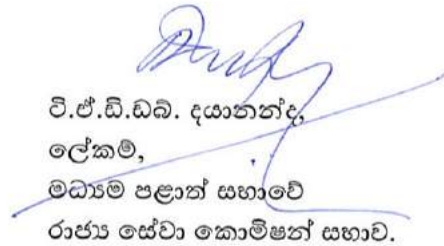 ටී.ඒ.ඩී.ඩබ්. දයානන්ද,
ලේකම්,
මධ්‍යම පළාත් සභාවේ
රාජ්‍ය සේවා කොමිෂන් සභාව.